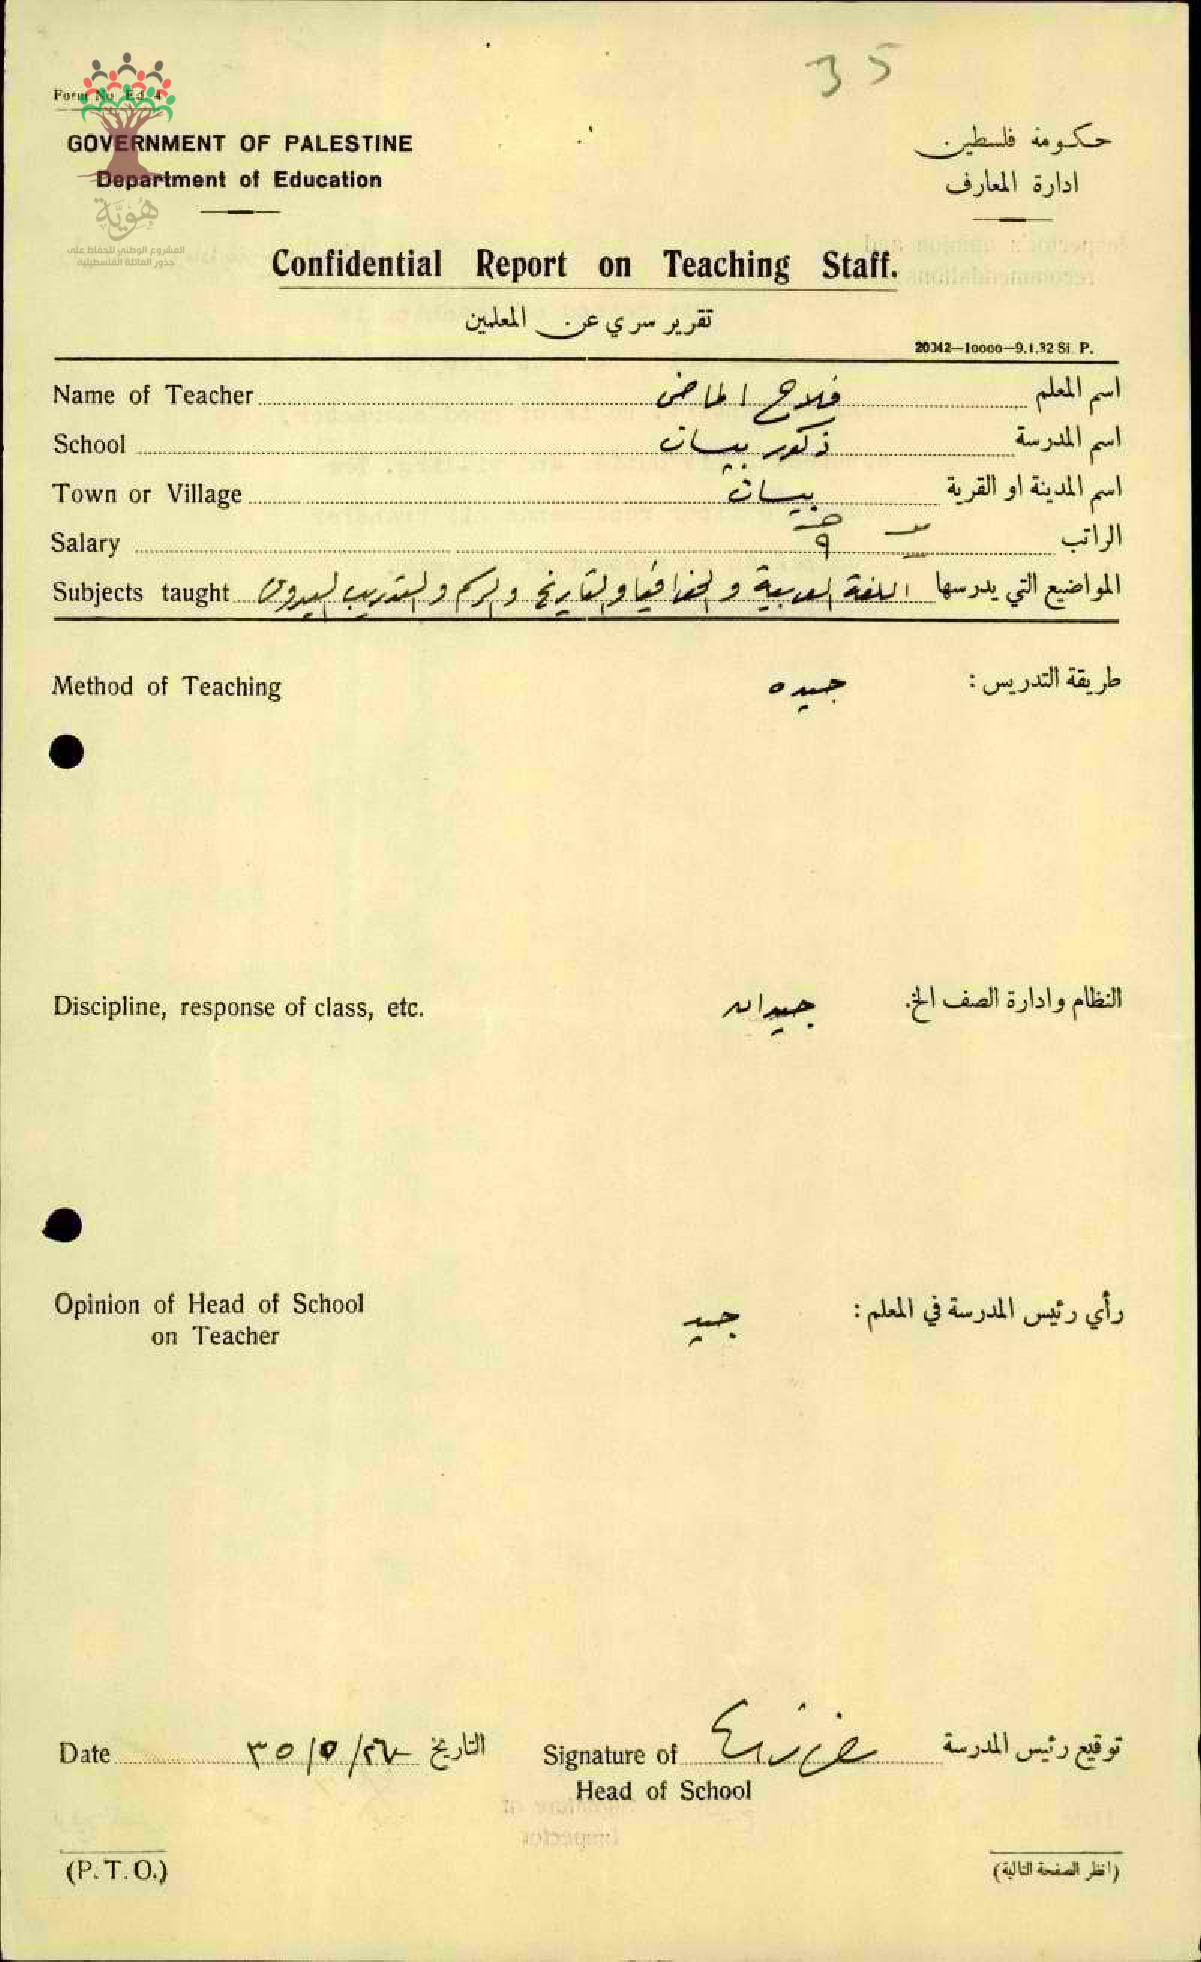 35
Form No. Ed. 4
GOVERNMENT OF PALESTINE
Department of Education
حكومة فلسطين
ادارة المعارف
هُوِيَّة
المشروع الوطني للحفاظ على
جذور العائلة الفلسطينية
Confidential Report on Teaching Staff.
تقرير سري عن المعلمين
20042—10000—9.1.32 Si. P.
Name of Teacher فلاح الماضي اسم المعلم
School ذكور بيسان اسم المدرسة
Town or Village بيسان اسم المدينة او القرية
Salary ٩ الراتب
Subjects taught اللغة العربية والجغرافيا والتاريخ والرسم والتدريب اليدوي المواضيع التي يدرسها
Method of Teaching جيده طريقة التدريس :
Discipline, response of class, etc. جيدان النظام وادارة الصف الخ.
Opinion of Head of School
on Teacher
جيد رأي رئيس المدرسة في المعلم :
Date ٢٦/٥/٣٥ التاريخ
Signature of
Head of School
توقيع رئيس المدرسة
(P. T. O.)
(انظر الصفحة التالية)